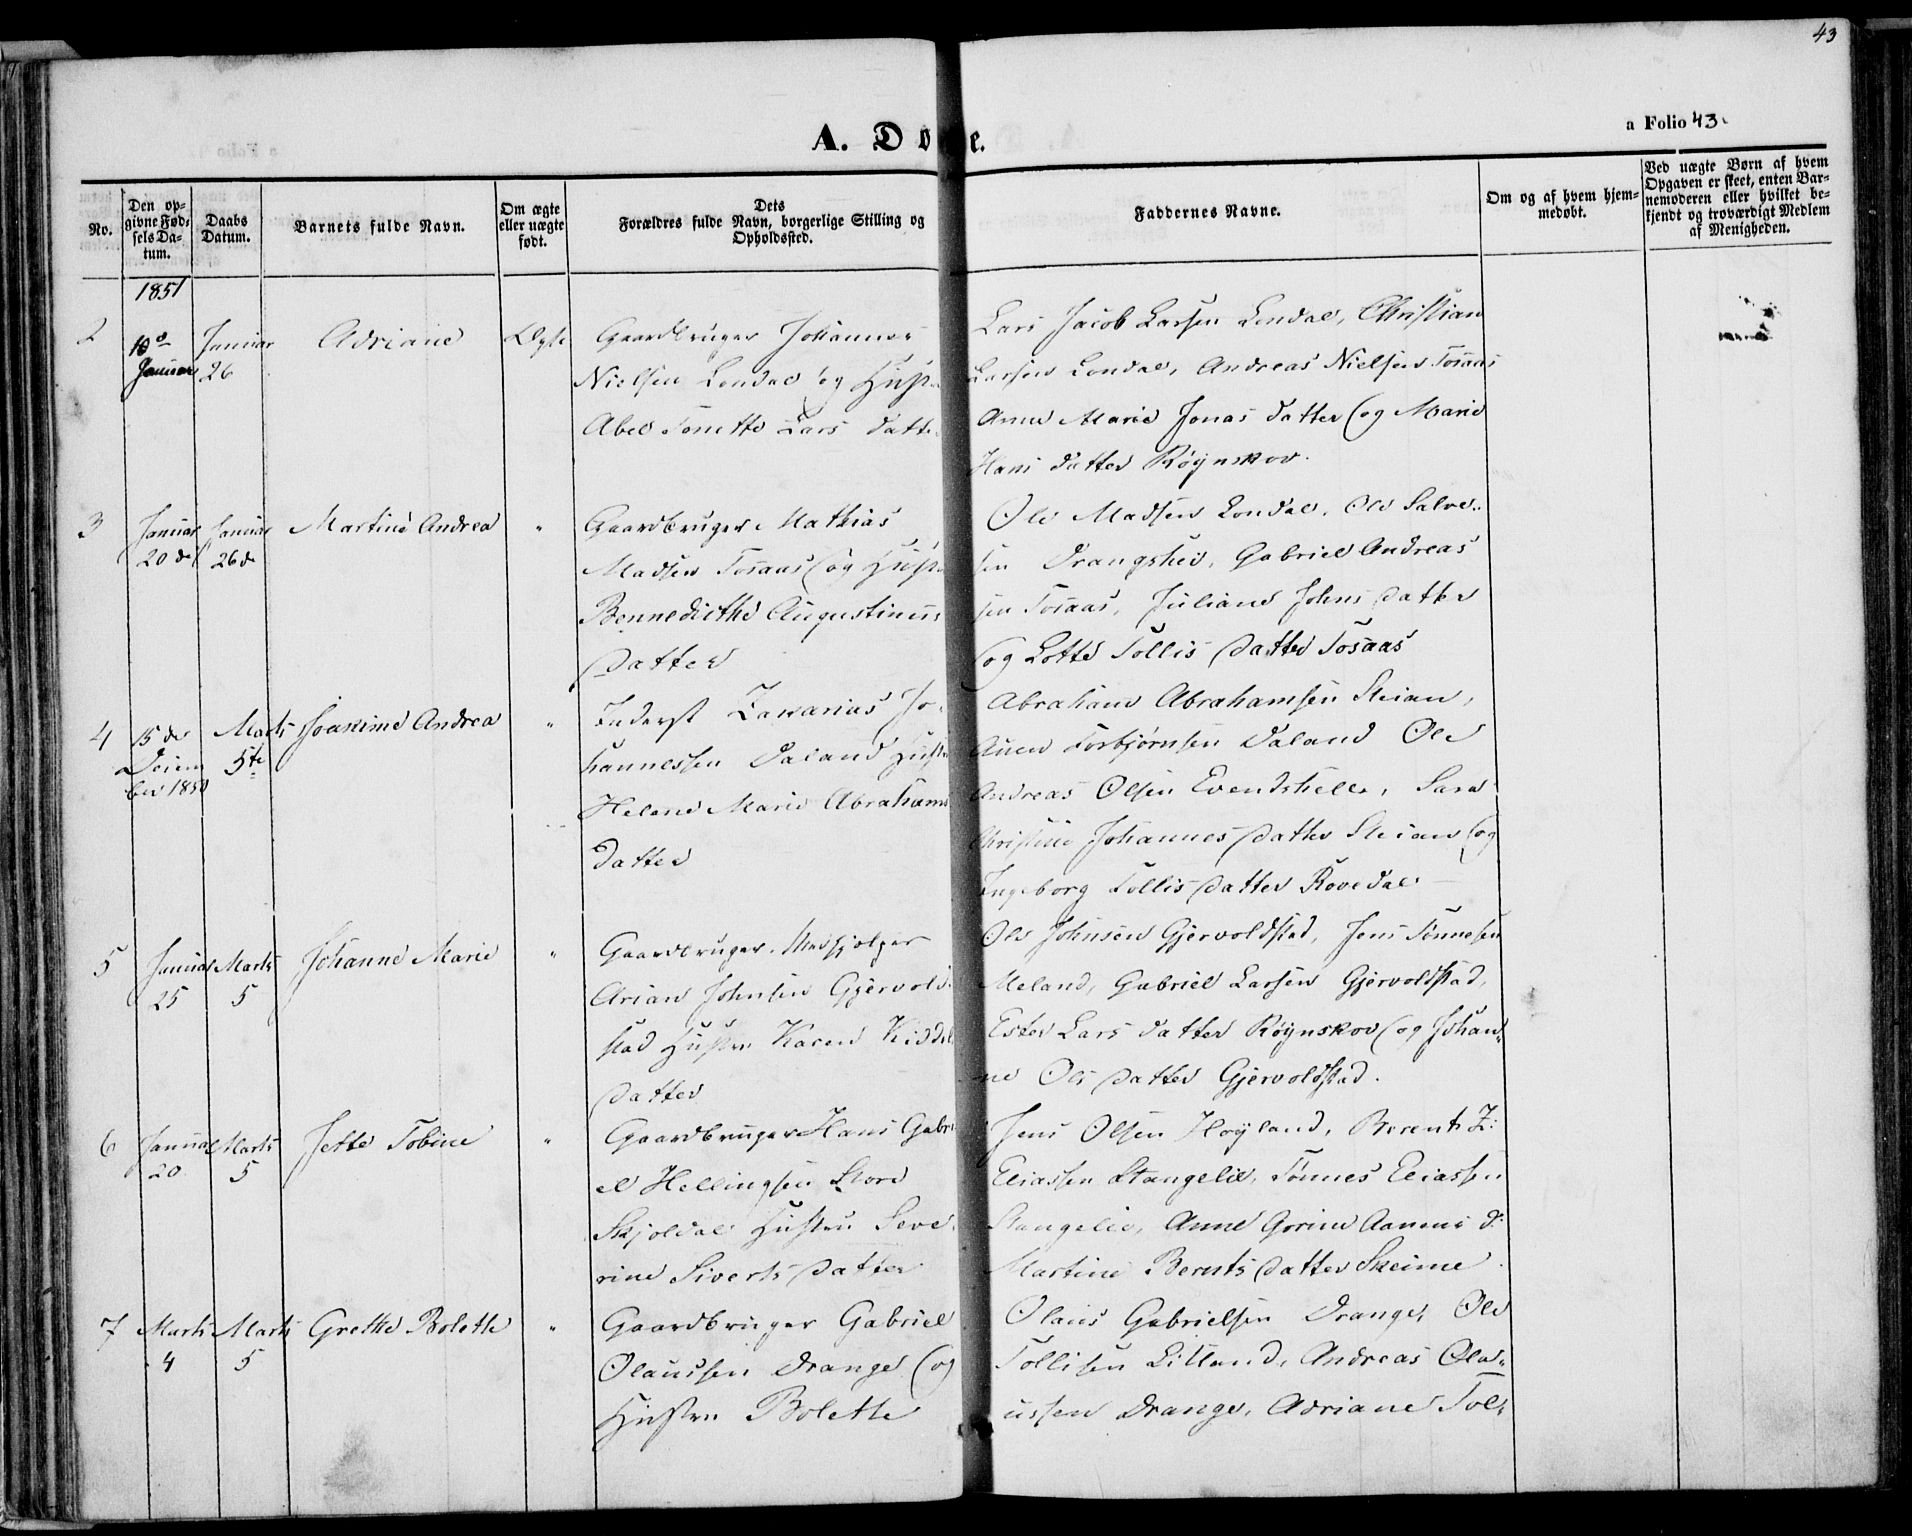 43
A. Døbte.
a Folio 43.
No.
Den op-
givne Fød-
sels Da-
tum.
Daabs
Datum.
Barnets fulde Navn.
Om ægte
eller uægte
født.
Dets
Forældres fulde Navn, borgerlige Stilling og
Opholdssted.
Faddernes Navne.
Om og af hvem hjem-
medøbt.
Ved uægte Børn af hvem
Opgaven er skeet, enten Bar-
nemoderen eller hvilket be-
kjendt og troværdigt Medlem
af Menigheden.
1851
2
10de
Januar
Januar
26
Adriane
Ægte
Gaardbruger Johannes
Nielsen Londal og Hustr
Abel Tonette Lars datte
Lars Jacob Larsen Londal, Christian
Larsen Londal, Andreas Nielsen Tosaas
Anne Marie Jonas datter og Marie
Hans datter Røynskov.
3
Januar
20de
Januar
26de
Martine Andrea
"
Gaardbruger Mathias
Madsen Tosaas og Hustr
Bennedicthe Augustinus
datter
Ole Madsen Londal, Ole Salve-
sen Drangsheo, Gabriel Andreas
sen Tosaas, Juliane Johns datter
og Lotte Tollis datter Tosaas
4
15de
Decem
ber 1850
Marts
5te
Joakime Andrea
"
Inderst Zakarias Jo-
hannessen Daland Hustr
Helene Marie Abrahams
datter
Abraham Abrahamsen Steian,
Aanen Torbjørnsen Daland Ole
Andreas Olsen Evendshelle, Sara
Christine Johannes datter Steian og
Ingeborg Tollis datter Rovedal
5
Januar
25
Marts
5
Johanne Marie
"
Gaardbruger Medhjelper
Arian Johnsen Gjervold-
stad Hustru Karen Kiddels
datter
Ole Johnsen Gjervoldstad, Jens Tønnesen
Meland, Gabriel Larsen Gjervoldstad,
Ester Lars datter Røynskov og Johan-
ne Ols datter Gjervoldstad.
6
Januar
20
Marts
5
Jette Tobine
"
Gaardbruger Hans Gabri
el Hellingsen Store
Skjoldal Hustru Seve-
rine Siverts datter
Jens Olsen Høyland, Berent Z:
Eliassen Stangelie, Tønnes Eliassen
Stangelie, Anne Gorine Aanens d:
Martine Bernts datter Skeime
7
Marts
4
Marts
5
Grethe Bolette
"
Gaardbruger Gabriel
Olaussen Drange og
Hustru Bolette
Olaus Gabrielsen Drange, Ole
Tollisen Litland, Andreas Ola-
ussen Drange, Adriane Tol-